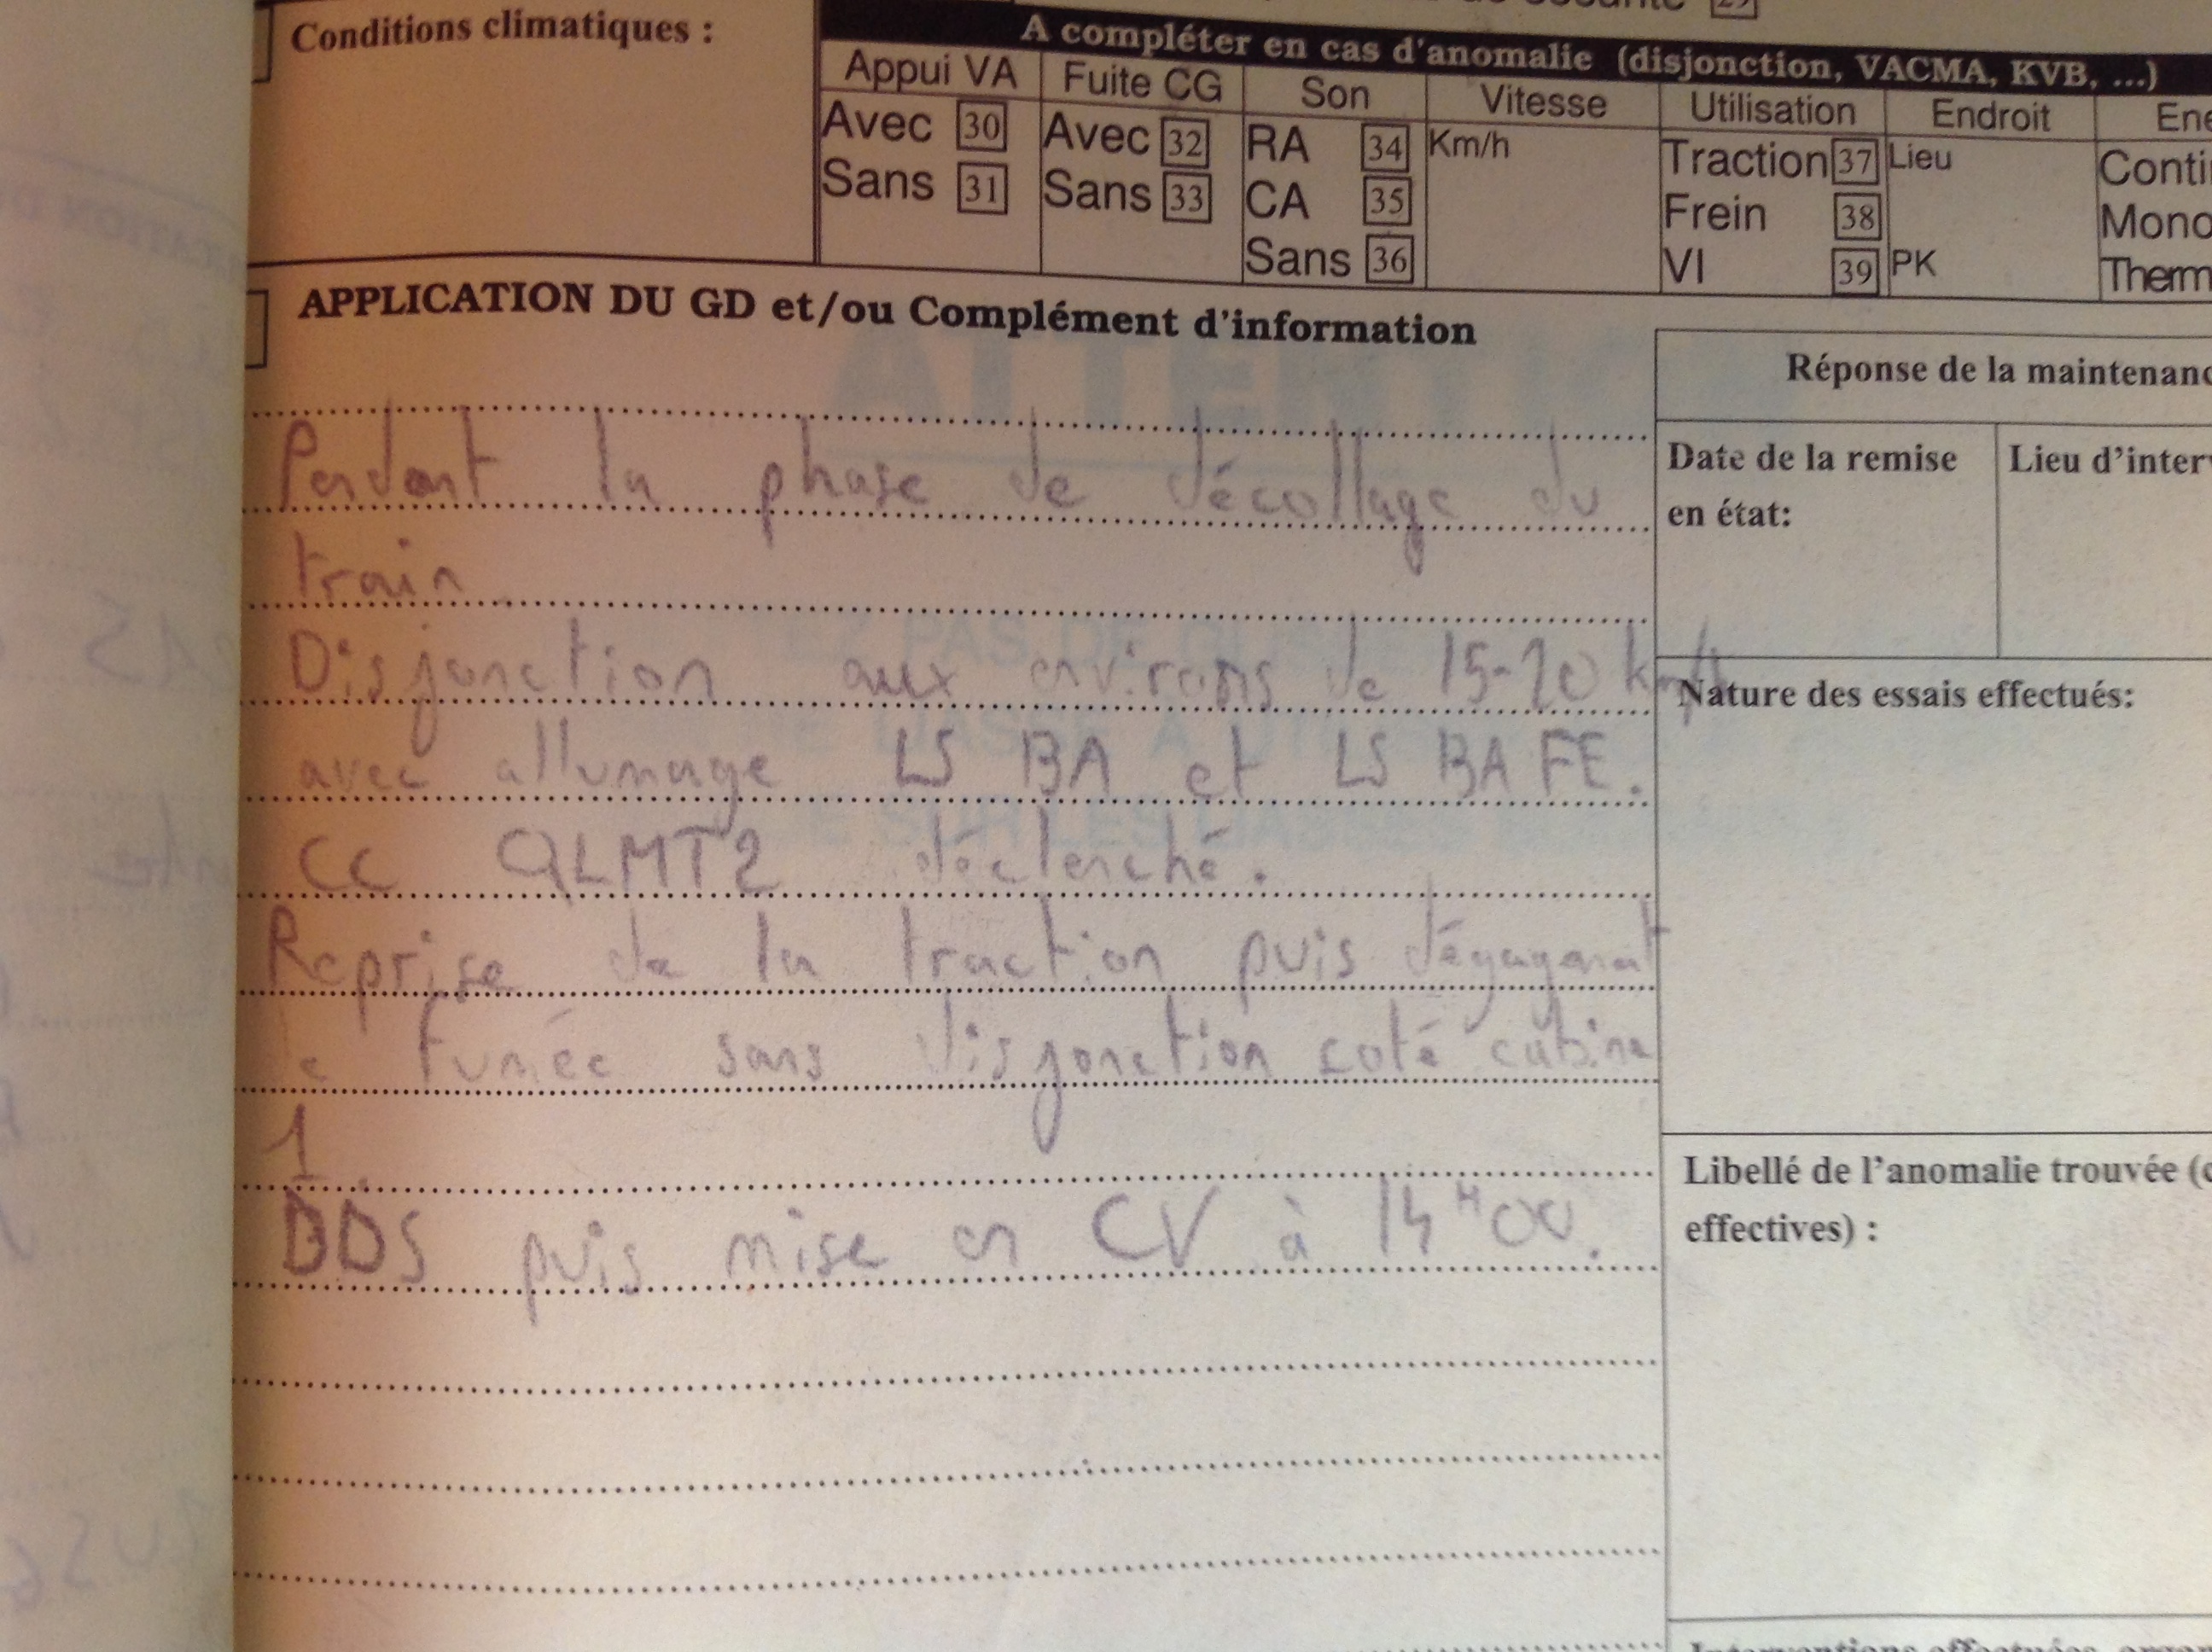 Conditions climatiques :
29
A compléter en cas d'anomalie (disjonction, VACMA, KVB, ...)
Appui VA Fuite CG Son Vitesse Utilisation Endroit
Avec 30 Avec 32 RA 34 Km/h Traction 37 Lieu
Sans 31 Sans 33 CA 35 Frein 38
Sans 36 VI 39 PK
APPLICATION DU GD et/ou Complément d'information
Pendant la phase de décollage du
train
Disjonction aux environs de 15-20 km/h
avec allumage LS BA et LS BA FE.
CC QLMT2 déclenché.
Reprise de la traction puis dégagement
de fumée sans disjonction coté cabine
1.
DDS puis mise en CV à 14H00.
Réponse de la
Date de la remise
en état:
Lieu
Nature des essais effectués:
Libellé de l'anomalie trouvée
effectives) :